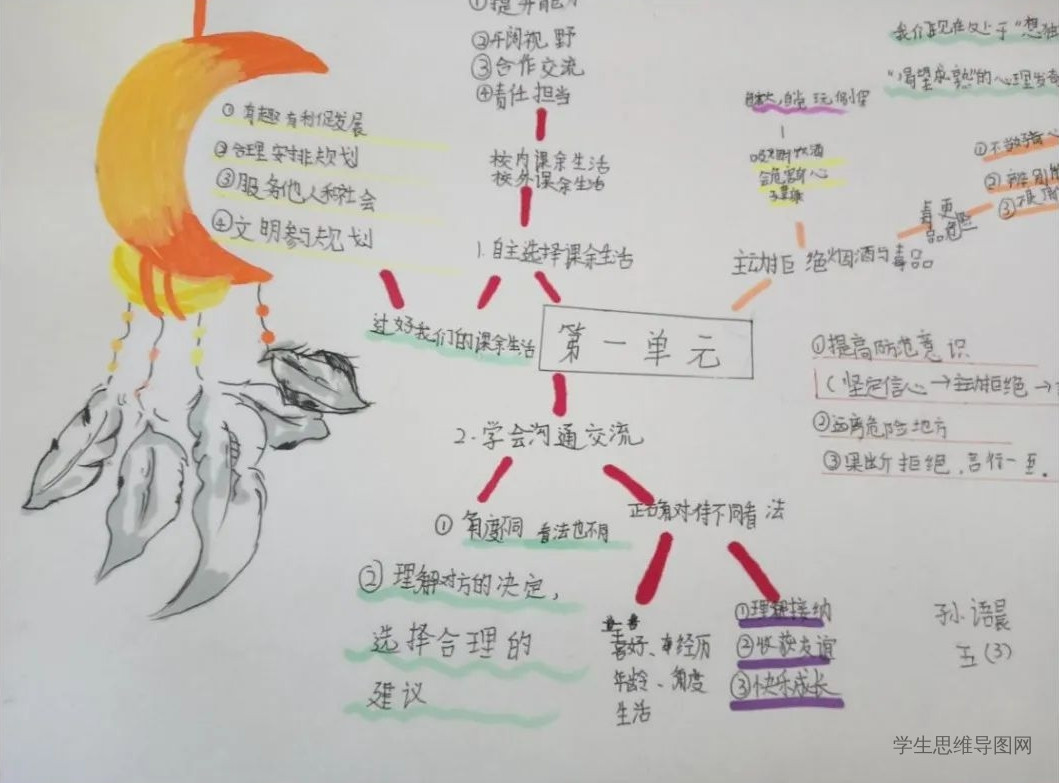 ②开阔视野
③合作交流
④责任担当
校内课余生活
校外课余生活
1.自主选择课余生活
①有趣有利促发展
②合理安排规划
③服务他人和社会
④文明参与规划
过好我们的课余生活
第一单元
我们现在处于“想独
“渴望成熟”的心理发
会危害身心
主动拒绝烟酒与毒品
毒品更危险
①提高防范意识
(坚定信心→主动拒绝→
②远离危险地方
③果断拒绝,言行一至.
2.学会沟通交流
①角度不同 看法也不同
②理解对方的决定,
选择合理的
建议
正确对待不同看法
喜好、
经历
年龄、角度
生活
①理解接纳
②收获友谊
③快乐成长
孙语晨
五(3)
学生思维导图网